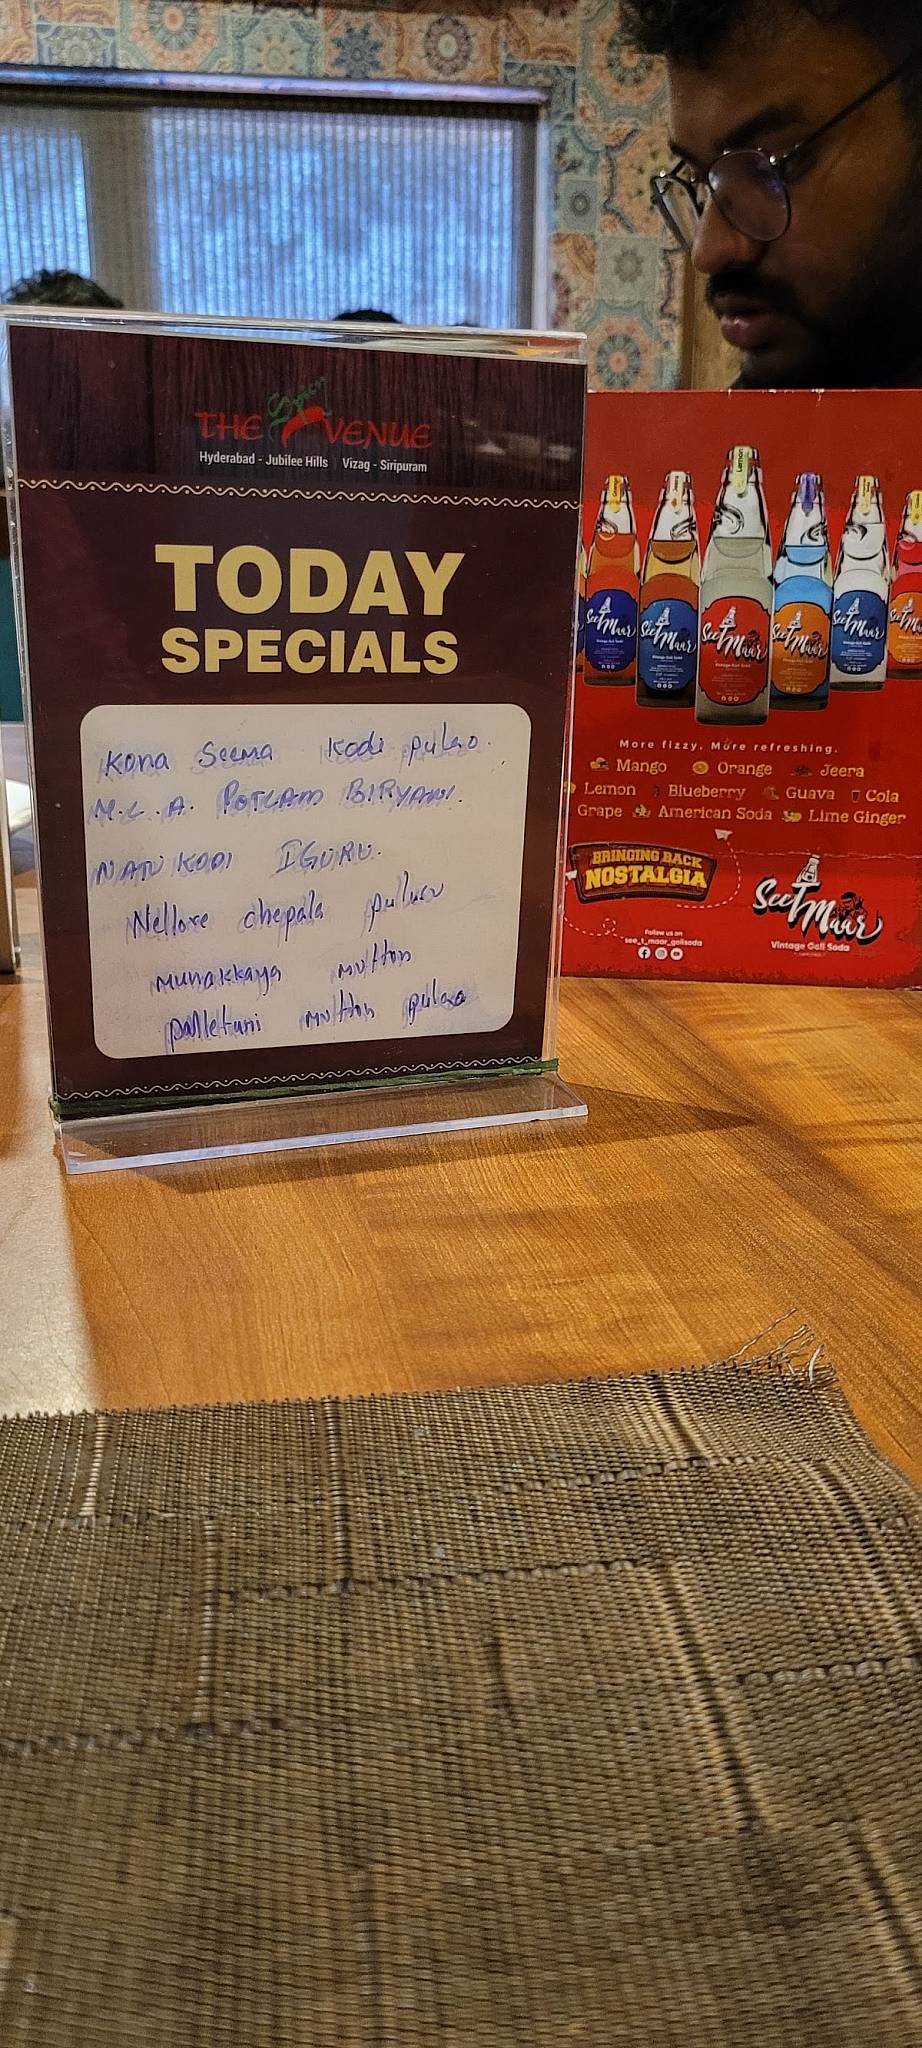 THE Spicy VENUE
Hyderabad - Jubilee Hills | Vizag - Siripuram
TODAY
SPECIALS
Kona Seema Kodi pulao.
M.L.A. POTLAM BIRYANI.
NATU KODI IGURU.
Nellore chepala pulusu
munakkaya mutton
palletuni mutton pulao
Lemon
See T Maar
See T Maar
See T Maar
See T Maar
See T Maar
See T Maar
Vintage Goli Soda
More fizzy. More refreshing.
Mango Orange Jeera
Lemon Blueberry Guava Cola
Grape American Soda Lime Ginger
BRINGING BACK
NOSTALGIA
See T Maar
Vintage Goli Soda
Follow us on
see_t_maar_golisoda